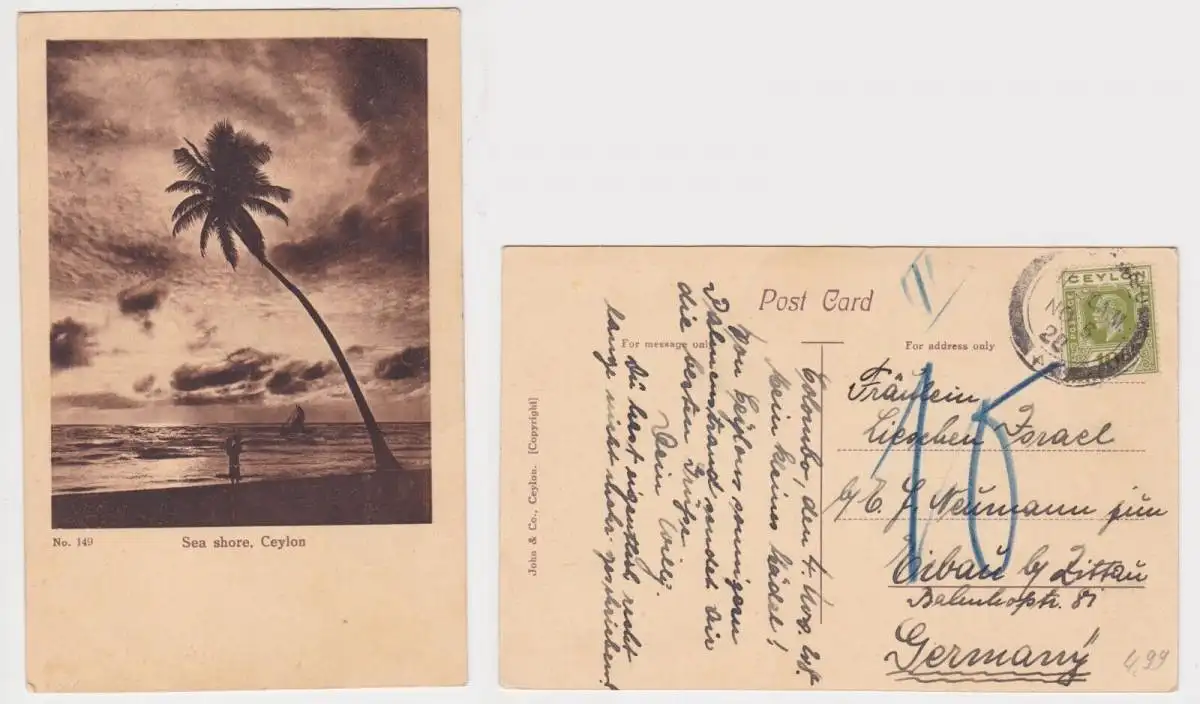 No. 149
Sea shore, Ceylon
John & Co., Ceylon. [Copyright]
Post Card
For message only
For address only
CEYLON
Colombo, den 4. Nov.
Mein kleines Mädel!
Von Ceylons sonnigem
Palmenstrand sendet Dir
die besten Grüße
Dein Willi
Du hast eigentlich recht
lange nicht mehr geschrieben!
Fräulein
Lieschen Israel
b/ C. G. Neumann jun
Eibau b/ Zittau
Bahnhofstr. 81
Germany
10
4,99